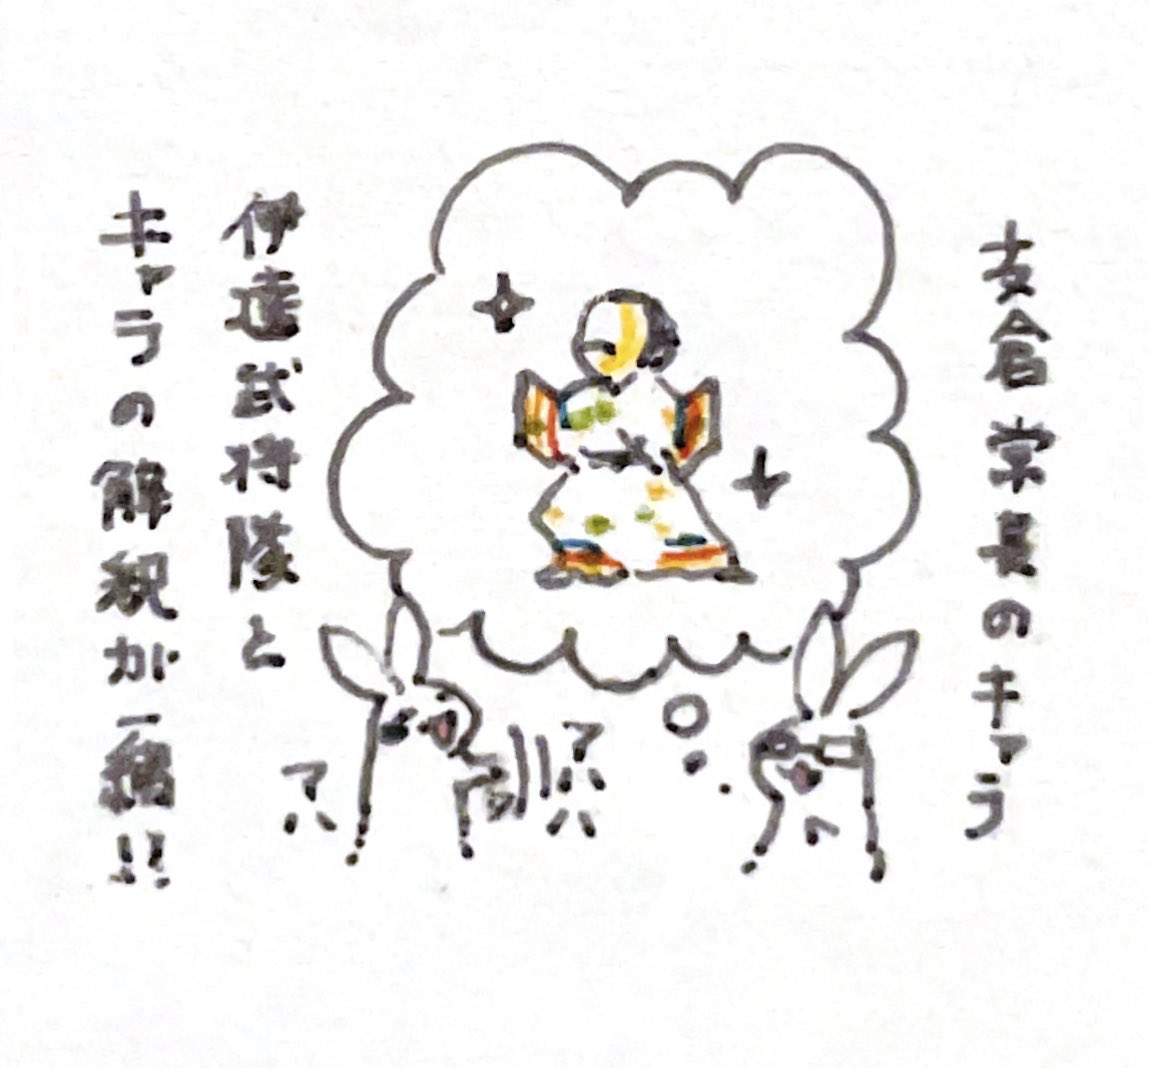 支倉常長のキャラ
伊達武将隊と
キャラの解釈が一緒!!
アハハ
アハ